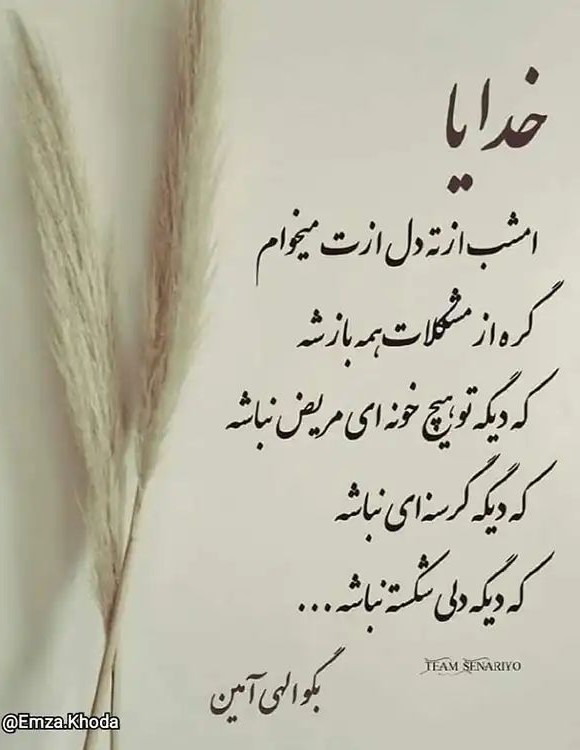 خدایا
امشب از ته دل ازت میخوام
گره از مشکلات همه باز شه
که دیگه تو هیچ خونه ای مریض نباشه
که دیگه گرسنه ای نباشه
که دیگه دلی شکسته نباشه...
TEAM SENARIYO
بگو الهی آمین
@Emza.Khoda